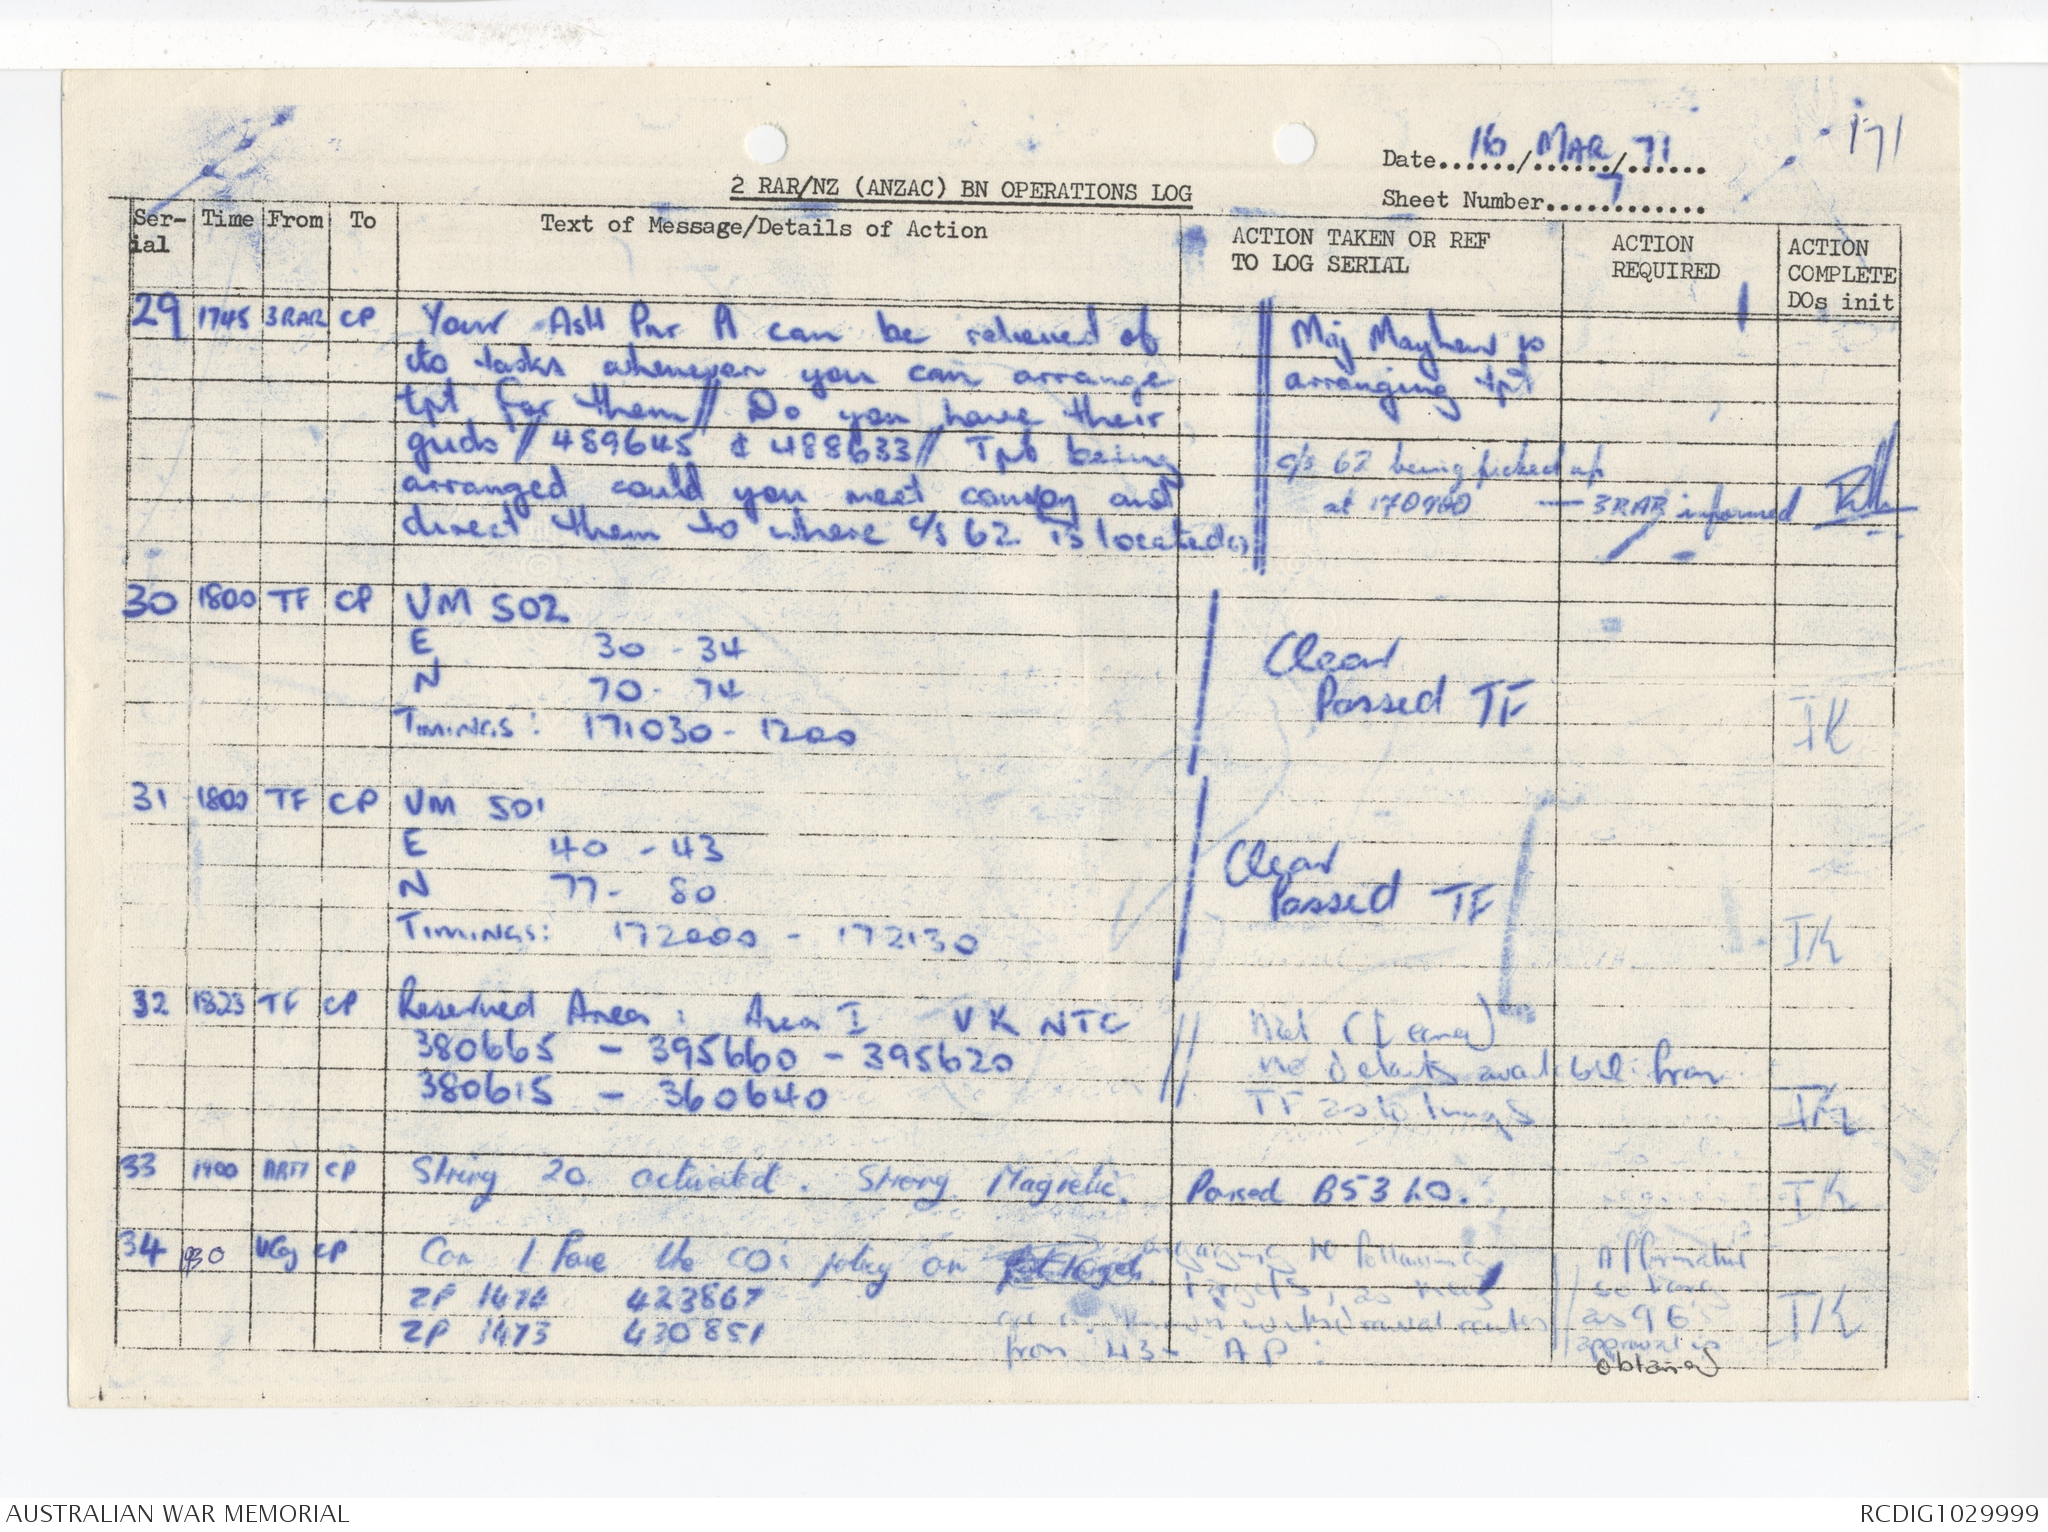 171
Date 16 / MAR / 71
Sheet Number 7
2 RAR/NZ (ANZAC) BN OPERATIONS LOG
Ser-ial Time From To Text of Message/Details of Action ACTION TAKEN OR REF TO LOG SERIAL ACTION REQUIRED ACTION COMPLETE DOs init
29 1745 3RAR CP Your Aslt Pnr Pl can be relieved of
its tasks whenever you can arrange
tpt for them // Do you have their
grids // 489645 & 488633 // Tpt being
arranged could you meet convoy and
direct them to where c/s 62 is located
Maj Mayhew is
arranging tpt
c/s 62 being picked up
at 170900 — 3RAR informed
30 1800 TF CP VM 502
E 30 - 34
N 70 - 74
Timings: 171030 - 1200
Clear
Passed TF
IK
31 1800 TF CP VM 501
E 40 - 43
N 77 - 80
Timings: 172000 - 172130
Clear
Passed TF
IK
32 1823 TF CP Reserved Area: Area I VK NTC
380665 - 395660 - 395620
380615 - 360640
(I area)
no details available from
TF as to timings
IK
33 1900 ARTY CP String 20 activated. Strong Magnetic. Passed B53 LO. IK
34 1930 VCoy CP Can I have the CO's policy on engaging the following
targets, as they
ZP 1474 423867
ZP 1473 430851
are in withdrawal routes
from 43- AP:
Affirmative
so long
as 96
approval is
obtained
IK
AUSTRALIAN WAR MEMORIAL
RCDIG1029999